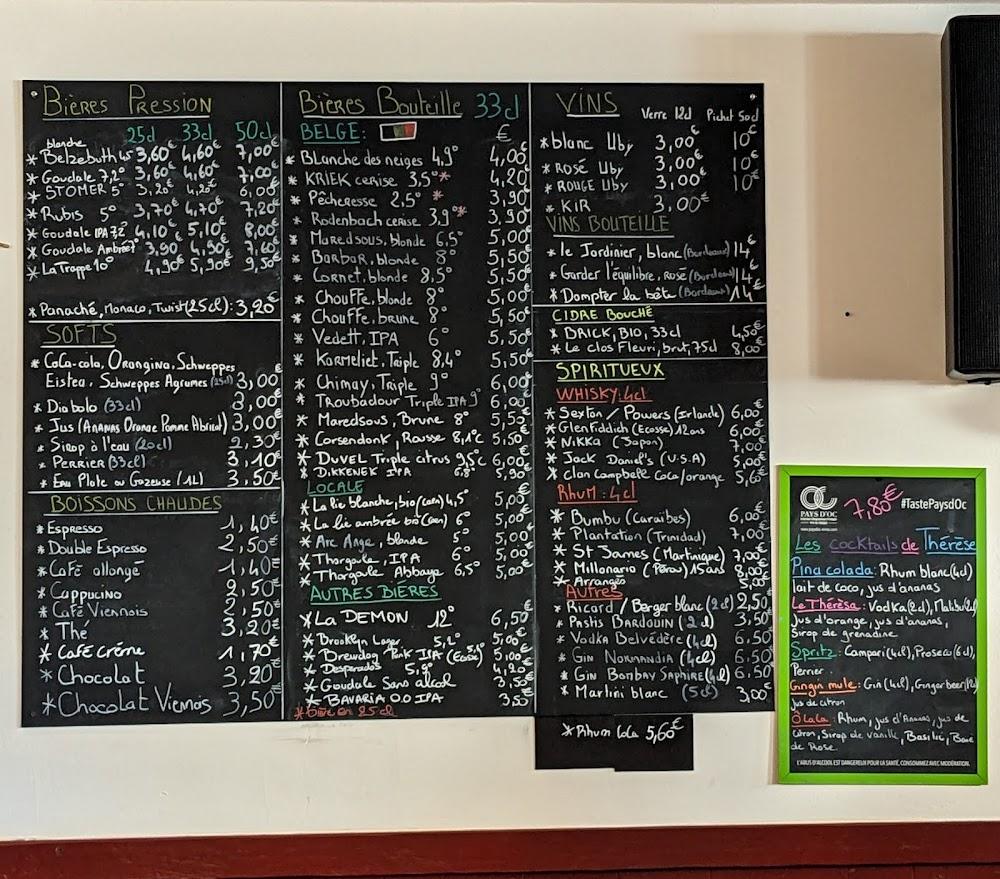 Bières Pression
25cl 33cl 50cl
blanche
* Belzebuth 4,5° 3,60€ 4,60€ 7,00€
* Goudale 7,2° 3,60€ 4,60€ 7,00€
* STOMER 5° 3,20€ 4,20€ 6,00€
* Rubis 5° 3,70€ 4,70€ 7,20€
* Goudale IPA 7,2° 4,10€ 5,10€ 8,00€
* Goudale Ambrée 7° 3,90€ 4,90€ 7,60€
* La Trappe 10° 4,90€ 5,90€ 9,50€
* Panaché, Monaco, Twist (25cl): 3,20€
SOFTS
* Coca-cola, Orangina, Schweppes
Eistea, Schweppes Agrumes (25cl) 3,00€
* Diabolo (33cl) 3,00€
* Jus (Ananas Orange Pomme Abricot) 3,00€
* Sirop à l'eau (20cl) 2,30€
* PERRIER (33cl) 3,10€
* Eau Plate ou Gazeuse (1L) 3,50€
BOISSONS CHAUDES
* Espresso 1,40€
* Double Espresso 2,50€
* Café allongé 1,40€
* Cappucino 2,50€
* Café Viennois 2,50€
* Thé 3,20€
* Café Crème 1,70€
* Chocolat 3,20€
* Chocolat Viennois 3,50€
Bières Bouteille 33cl
BELGE: €
* Blanche des neiges 4,9° 4,00€
* KRIEK cerise 3,5°* 4,20€
* Pêcheresse 2,5° * 3,90€
* Rodenbach cerise 3,9°* 3,90€
* Maredsous, blonde 6,5° 5,00€
* Barbar, blonde 8° 5,50€
* Cornet, blonde 8,5° 5,50€
* Chouffe, blonde 8° 5,00€
* Chouffe, brune 8° 5,50€
* Vedett, IPA 6° 5,50€
* Karmeliet, Triple 8,4° 5,50€
* Chimay, Triple 9° 6,00€
* Troubadour Triple IPA 9° 6,00€
* Maredsous, Brune 8° 5,55€
* Corsendonk, Rousse 8,1°c 5,50€
* DUVEL Triple citrus 9,5°c 6,00€
* D.IKKENEK IPA 6,8° 5,90€
LOCALE
* La lie blanche, bio (caen) 4,5° 5,00€
* La lie ambrée bio (caen) 6° 5,00€
* Arc Ange, blonde 5° 5,00€
* Thorgoule, IPA 6° 5,00€
* Thorgoule Abbaye 6,5° 5,00€
AUTRES BIERES
* La DEMON 12° 6,50€
* Brooklyn Lager 5,2° 5,00€
* Brewdog Punk IPA (Ecosse) 5,4° 5,00€
* Desperados 5,9° 4,20€
* Goudale Sans alcool 3,50€
* BAVARIA 0.0 IPA 3,50€
VINS
Verre 12cl Pichet 50cl
* blanc Uby 3,00€ 10€
* ROSÉ Uby 3,00€ 10€
* ROUGE Uby 3,00€ 10€
* KIR 3,00€
VINS BOUTEILLE
* le Jardinier, blanc (Bordeaux) 14€
* Garder l'équilibre, Rosé (Bordeaux) 14€
* Dompter la bête (Bordeaux) 14€
CIDRE BOUCHÉ
* BRICK, BIO, 33cl 4,50€
* Le clos Fleuri, brut, 75cl 8,00€
SPIRITUEUX
WHISKY: 4cl
* Sexton / Powers (Irlande) 6,00€
* Glenfiddich (Ecosse) 12ans 8,00€
* NiKKA (Japon) 7,00€
* Jack Daniel's (U.S.A) 5,00€
* Clan Campbell Coca/orange 5,60€
Rhum: 4cl
* Bumbu (Caraïbes) 6,00€
* Plantation (Trinidad) 7,00€
* St James (Martinique) 7,00€
* Millonario (Pérou) 15ans 8,00€
* Arrangés 5,00€
Autres
* Ricard / Berger blanc (2cl) 2,50€
* Pastis BARDOUIN (2cl) 3,50€
* Vodka Belvédère (4cl) 6,50€
* Gin NORMANDIA (4cl) 6,50€
* Gin Bombay Saphire (4cl) 6,50€
* Martini blanc (5cl) 3,00€
* Rhum Cola 5,60€
PAYS D'OC
7,80€ #TastePaysdOc
Les cocktails de Thérèse
Pina colada: Rhum blanc (4cl)
lait de coco, jus d'ananas
Le Thérèsa: Vodka (2cl), Malibu (2cl)
jus d'orange, jus d'ananas,
Sirop de grenadine
Spritz: Campari (4cl), Proseco (6cl),
Perrier.
Gingin mule: Gin (4cl), Ginger beer
jus de citron
Ô LaLa: Rhum, jus d'Ananas, jus de
citron, Sirop de vanille, Basilic, Baie
de Rose
L'ABUS D'ALCOOL EST DANGEREUX POUR LA SANTÉ, CONSOMMEZ AVEC MODÉRATION.